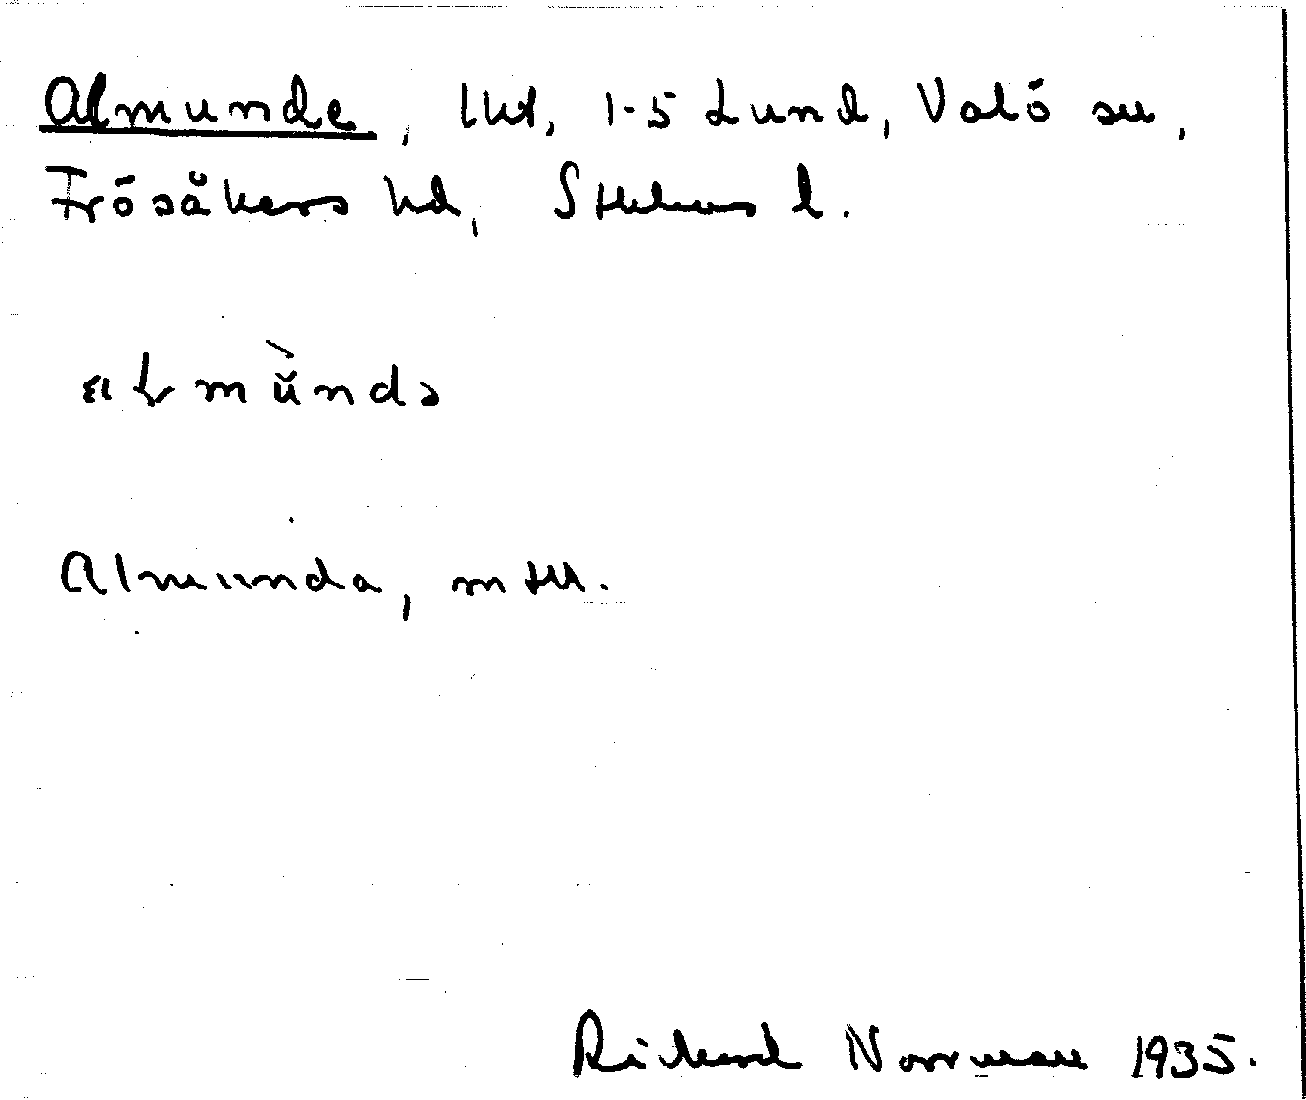 Almunde, lht, 1-5 Lund, Valö sn,
Frösåkers hd, Sthlms l.
Almunda, mtU.
Rikard Norrman 1935.